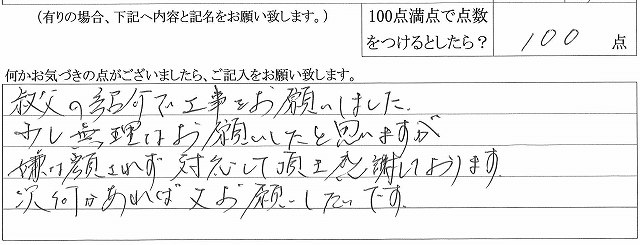 (有りの場合、下記へ内容と記名をお願い致します。)
100点満点で点数
をつけるとしたら?
100 点
何かお気づきの点がございましたら、ご記入をお願い致します。
叔父の紹介で工事をお願いしました。
少し無理なお願いしたと思いますが
嫌な顔されず対応して頂き感謝しております
次何かあれば又お願いしたいです。